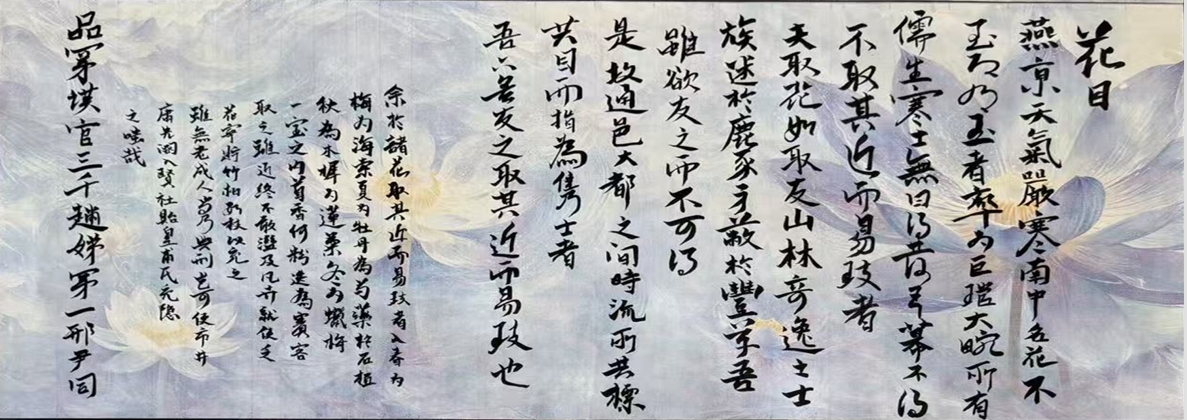 花目
燕京天氣嚴寒南中名花不
至即有至者率為巨璫大畹所有
儒生寒士無因得發其幕不得
不取其近而易致者
夫取花如取友山林奇逸之士
族迷於鹿豕身蔽於豐草吾
雖欲友之而不可得
是故通邑大都之間時流所共標
共目而指為雋士者
吾亦欲友之取其近而易致也
余於諸花取其近而易致者入春為
梅為海棠夏為牡丹為芍藥為石榴
秋為木樨為蓮菊冬為蠟梅
一室之內荀香何粉迭為賓客
取之雖近終不敢濫及凡卉就使乏
花寧貯竹柏數枝以充之
雖無老成人尚有典刑豈可使市井
庸兒溷入賢社貽皇甫氏充隱
之嗤哉
品第漢宮三千趙姊第一邢尹同